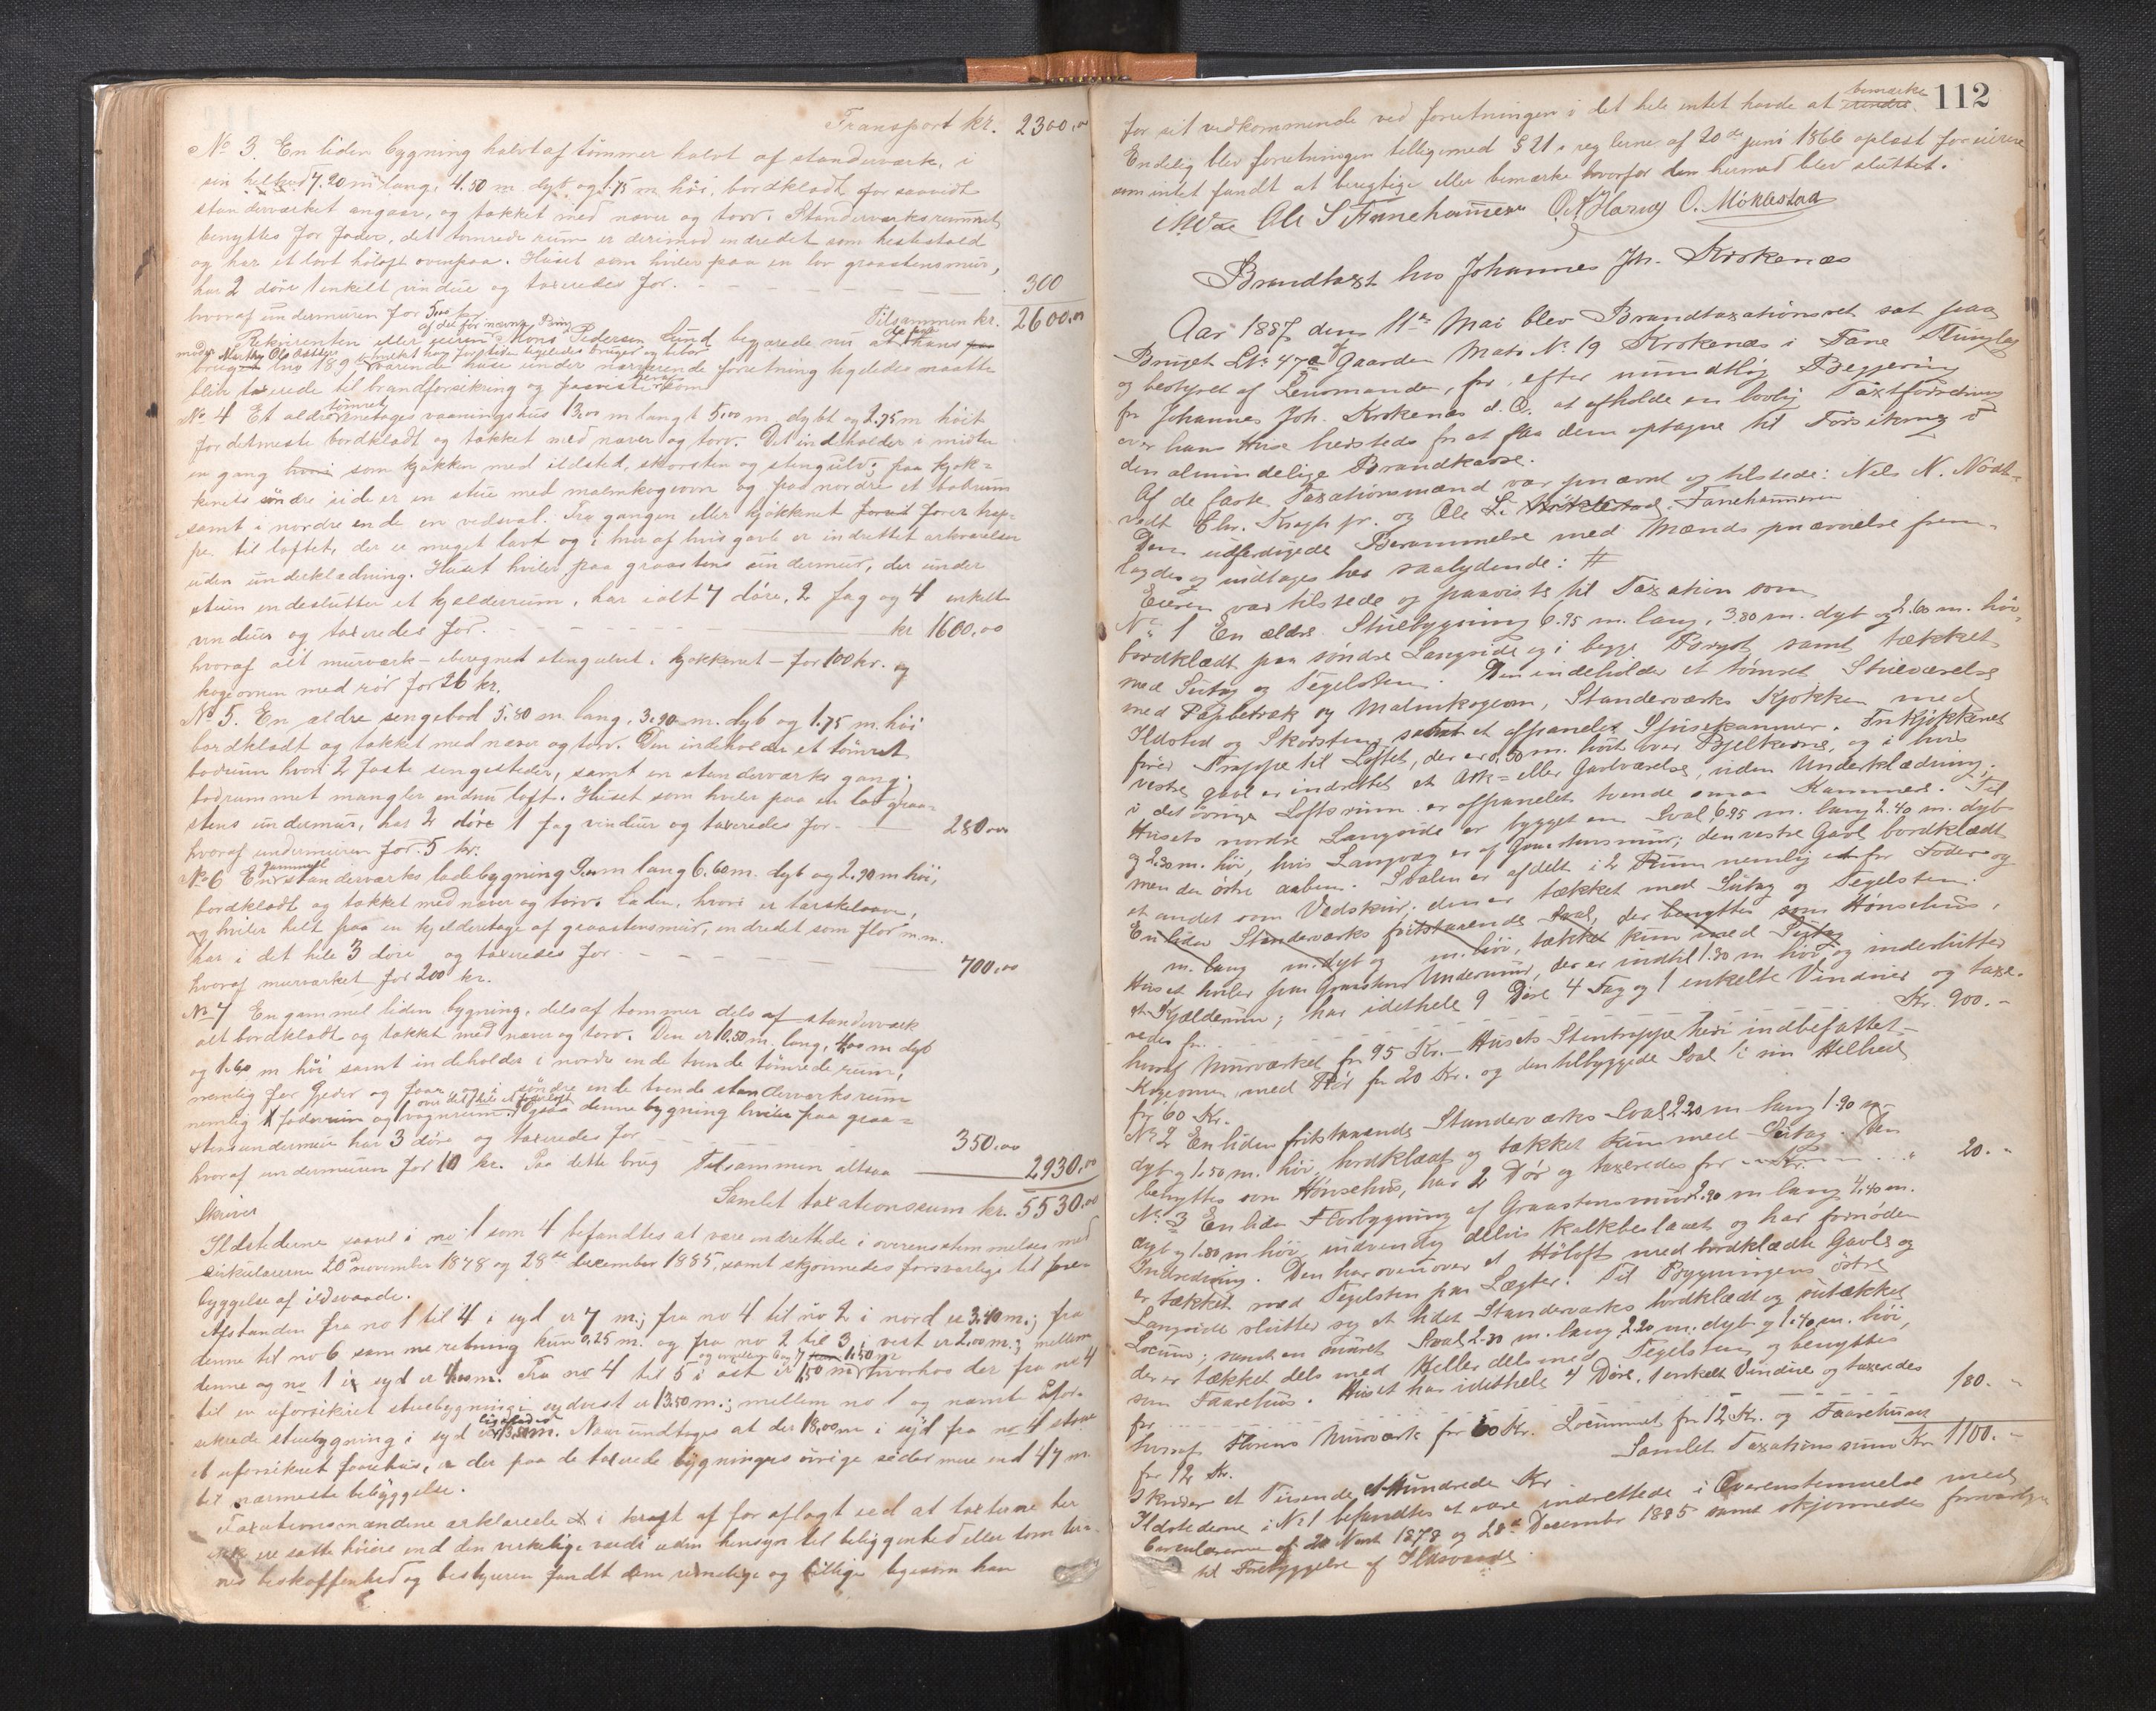 Transport kr. 2300,00
No 3. En liden bygning halvt af tømmer halvt af standerværk, i
sin helhed 7.20 m lang, 4.50 m. dyb og 1.75 m. høi, bordklædt for saavidt
standerværket angaar, og tækket med næver og torv. Standerværksrummet
benyttes for foder, det tømrede rum er derimod indredet som hestestald
og har et lavt høloft ovenpaa. Huset som hviler paa en lav graastensmur,
har 2 døre 1 enkelt vindue og taxeredes for. 300
hvoraf undermuren for 5,00 kr. Tilsammen kr. 2600,00
Rekvirenten eller eieren af det før nævnte Brug Mons Pedersen Lund begjærede nu at de paa hans
moder Marthe Ols datters brug lno 189, værende huse under nærværende forretning ligeledes maatte
blive taxerede til brandforsikring og paaviste som
No 4 Et ældre tømret enetages vaaningshus 13,00 m langt 5,00 m dybt og 2.75 m høit
for detmeste bordklædt og tækket med næver og torv. Det indeholder i midten
en gang som kjøkken med ildsted, skorsten og stengulv; paa kjøk=
kenets søndre side er en stue med malmkogeovn og paa nordre et bodrum
samt i nordre ende en vedsval. Fra gangen eller kjøkkenet fører trap=
pe til loftet, der er meget lavt og i hver af hvis gavle er indrettet arkværelser
uden underklædning. Huset hviler paa graastens undermur, der under
stuen indeslutter et kjelderrum, har ialt 7 døre, 2 fag og 4 enkelte
vinduer og taxeredes for. kr 1600,00
hvoraf alt murværk – iberegnet stengulvet i kjøkkenet – for 100 kr. og
kogeovnen med rør for 26 kr.
No 5. En ældre sengebod 5.80 m. lang, 3.90 m. dyb og 1.75 m. høi
bordklædt og tækket med næver og torv. Den indeholder et tømret
bodrum hvori 2 faste sengesteder, samt en standerværks gang;
bodrummet mangler endnu loft. Huset som hviler paa en lav graa=
stens undermur, har 2 døre 1 fag vinduer og taxeredes for 280,00
hvoraf undermuren for 5 kr.
No 6 En gammel standerværks ladebygning m lang 6.60 m. dyb og 2.90 m høi,
bordklædt og tækket med næver og torv. Laden, hvori er tærskelaave,
og hviler helt paa en kjelderetage af graastensmur, indredet som flor m.m.
har i det hele 3 døre og taxeredes for 700,00
hvoraf murværket for 200 kr.
No 7 En gammel liden bygning, dels af tømmer dels af standerværk
alt bordklædt og tækket med næver og torv. Den er 10.50 m. lang, 4,00 m dyb
og 1.60 m høi samt indeholder i nordre ende tvende tømrede rum,
nemlig for gjeder og faar, og i søndre ende tvende standerværksrum
nemlig foderrum og vognrum. Ogsaa denne bygning hviler paa graa=
stens undermur har 3 døre og taxeredes for 350,00
hvoraf undermuren for 10 kr. Paa dette brug Tilsammen altsaa 2930,00
Skriver Samlet taxationssum kr. 5530,00
Ildstederne saavel i no 1 som 4 befandtes at være indrettede i overensstemmelse med
cirkulærerne 20de november 1878 og 28de december 1885, samt skjønnedes forsvarlige til fore=
byggelse af ildsvaade.
Afstanden fra no 1 til 4 i syd er 7 m; fra no 4 til no 2 i nord er 3,40 m.; fra
denne til no 6 samme retning kun 0,25 m. og fra no 2 til 3 i vest er 2,00 m.; mellem
denne og no 1 i syd er 4,00 m. Fra no 4 til 5 i øst er 1,50 m og mellem 6 og 7 1,50 m hvorhos der fra no 4
til en uforsikret stuebygning i sydvest er 13.50 m.; mellem no 1 og nævnte ufor=
sikrede stuebygning i syd ligeledes 13,50 m. Naar undtages at der 18,00 m i syd fra no 4 staar
et uforsikret faarehus, er der paa de taxerede bygningers øvrige sider mere end 47 m.
til nærmeste bebyggelse.
Taxationsmændene erklærede i kraft af før aflagt ed at taxterne her
ikke ere satte høiere end den virkelige værdi uden hensyn til beliggenhed eller tomte=
nes beskaffenhed og bestyreren fandt dem rimelige og billige ligesom han
112
for sit vedkommende ved forretningen i det hele intet havde at bemærke
Endelig blev forretningen tilligemed § 21 i reglerne af 20de juni 1866 oplæst for eieren
som intet fandt at berigtige eller bemærke hvorfor den hermed blev sluttet.
Ole S Fanehammeren O. Møklestad
Brandtaxt hos Johannes Joh. Krokenæs
Aar 1887 den 11te Mai blev Brandtaxationsret sat paa
Bruget Lno 47a af Gaarden Mats No 19 Krokenæs i Fane Thinglag
og bestyret af Lensmanden, for efter mundtlig Begjæring
fra Johannes Joh. Krokenæs d. D. at afholde en lovlig Taxtforretning
over hans Huse hersteds for at faa dem optagne til Forsikring i
den almindelige Brandkasse.
Af de faste Taxationsmænd var opnævnt og tilstede: Nels N. Nødt=
vedt Chr. Krogh jr. og Ole S. Møklestad Fanehammeren
Den udfærdigede Berammelse med Mænds opnævnelse frem=
lagdes og indtages her saalydende: #
Eieren var tilstede og paaviste til Taxation som
No 1 En ældre Stuebygning 6.95 m. lang, 3,80 m. dyb og 2.60 m. høi,
bordklædt paa søndre Langside og i begge Bryst samt tækket
med Sutag og Tegelsten. Den indeholder et tømret Stueværelse
med Papbetræk og Malmkogeovn, Standerværks Kjøkken med
Ildsted og Skorsten, samt et afpanelet Spisekammer. Fra Kjøkkenet
fører Trappe til Loftet, der er 0,50 m. høit over Bjelkerne, og i hvis
vestre gavl er indrettet et Ark= eller Gavlværelse, uden Underklædning;
i det øvrige Loftsrum er afpanelet tvende smaa Kammer. Til
Husets nordre Langside er bygget en Sval, 6.95 m. lang 2.40 m. dyb
og 2.20 m. høi, hvis Langvæg er af Graastensmur; den vestre Gavl bordklædt
men den østre aaben. Svalen er afdelt i 2 Rum nemlig et for Foder og
et andet som Vedskur; den er tækket med Sutag og Tegelsten.
En liden Standerværks fritstaaende Sval, der benyttes som Hønsehus,
m. lang m. dyb og m. høi, tækket kun med Sutag
Huset hviler paa Graastens Undermur, der er indtil 1.30 m høi og indeslutter
et Kjælderrum; har idethele 9 Døre 4 Fag og 1 enkelte Vinduer og taxe=
redes for Kr. 900.–
hvoraf Murværket for 95 Kr. – Husets Stentrappe heri indbefattet –
Kogeovnen med Rør for 20 Kr. og den tilbyggede Sval i sin Helhed
for 60 Kr.
No 2 En liden fritstaaende Standerværks Sval 2.20 m lang 1.90 m
dyb og 1.50 m. høi, bordklædt og tækket kun med Sutag. Den
benyttes som Hønsehus, har 2 Dør og taxeredes for 20.–
No 3 En liden Florbygning af Graastensmur 2.90 m lang 4.40 m.
dyb og 1.80 m høi, indvendig delvis kalkbeslaaet og har fornøden
Indredning. Den har ovenover et Høloft med bordklædte Gavle og
er tækket med Tegelsten paa Lægter. Til Bygningens østre
Langside slutter sig et lidet Standerværks bordklædt og sutækket
Locum; samt en muret Sval 2.30 m. lang 2.20 m. dyb og 1.40 m. høi,
der er tækket dels med Heller dels med Tegelsten og benyttes
som Faarehus. Huset har idethele 4 Døre, 1 enkelt Vindue og taxeredes
for 180.–
hvoraf Florens Murværk for 60 Kr. Locummet for 12 Kr. og Faarehuset
for 12 Kr. Samlet Taxationssum Kr. 1100.–
Skriver et Tusende et Hundrede Kr
Ildstederne i No 1 befandtes at være indrettede i Overenstemmelse med
Circulærerne af 20 Novb 1878 og 28de December 1885 samt skjønnedes forsvarlige
til Forebyggelse af Ildsvaade.